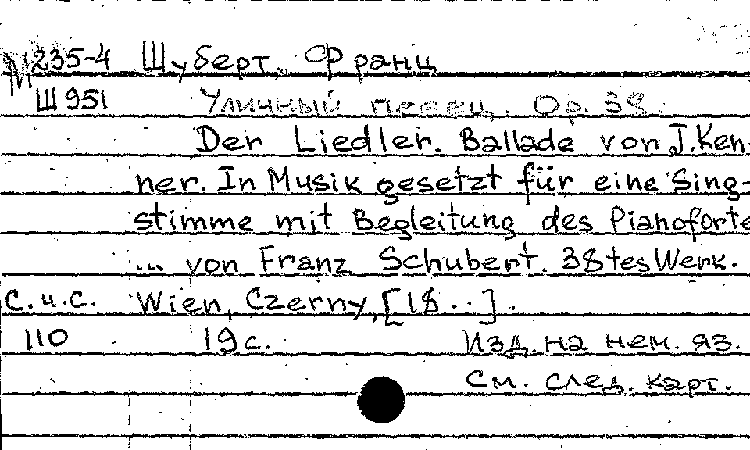 М 235-4 Шуберт, Франц
Ш 951 Уличный певец. Op. 38.
Der Liedler. Ballade von J. Ken-
ner. In Musik gesetzt für eine Sing-
stimme mit Begleitung des Pianoforte
... von Franz Schubert. 38tes Werk.
С.и.С. Wien, Czerny, [18..].
110 19 с. Изд. на нем. яз.
См. след. карт.